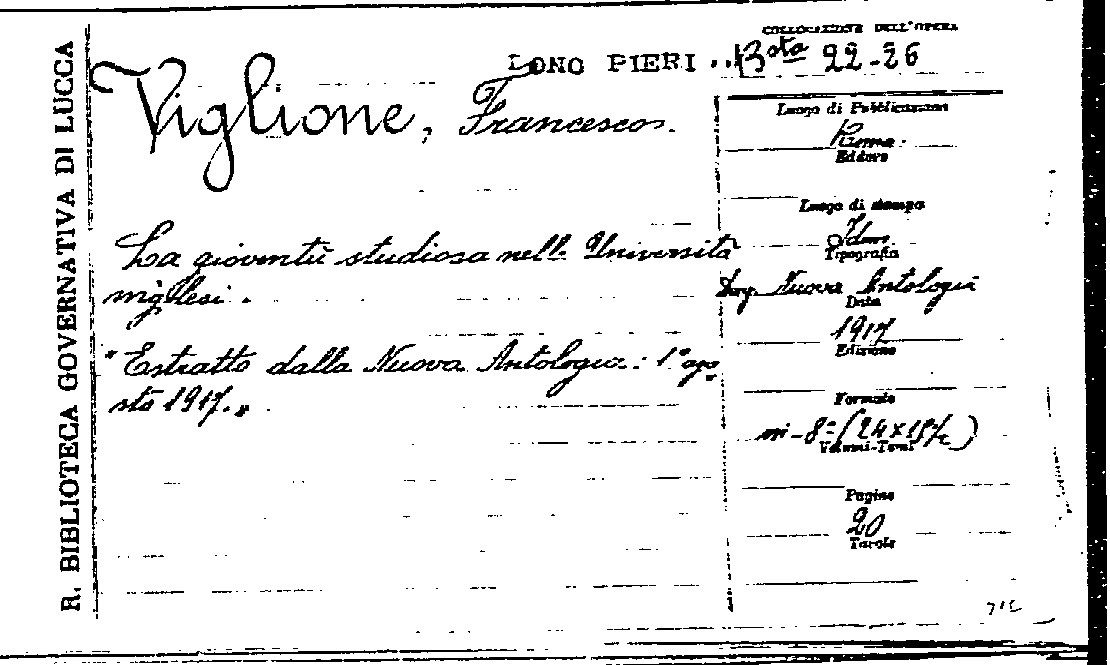 R. BIBLIOTECA GOVERNATIVA DI LUCCA
COLLOCAZIONE DELL'OPERA
DONO PIERI .. Bsta 22-26
Viglione, Francesco.
La gioventù studiosa nelle Università
inglesi.
"Estratto dalla Nuova Antologia: 1° ago
sto 1917."
Luogo di Pubblicazione
Roma.
Editore
Luogo di stampa
Idem
Tipografia
Nuova Antologia
Data
1917
Edizione
Formato
in-8° (24x
Volumi-Tomi
Pagine
20
Tavole